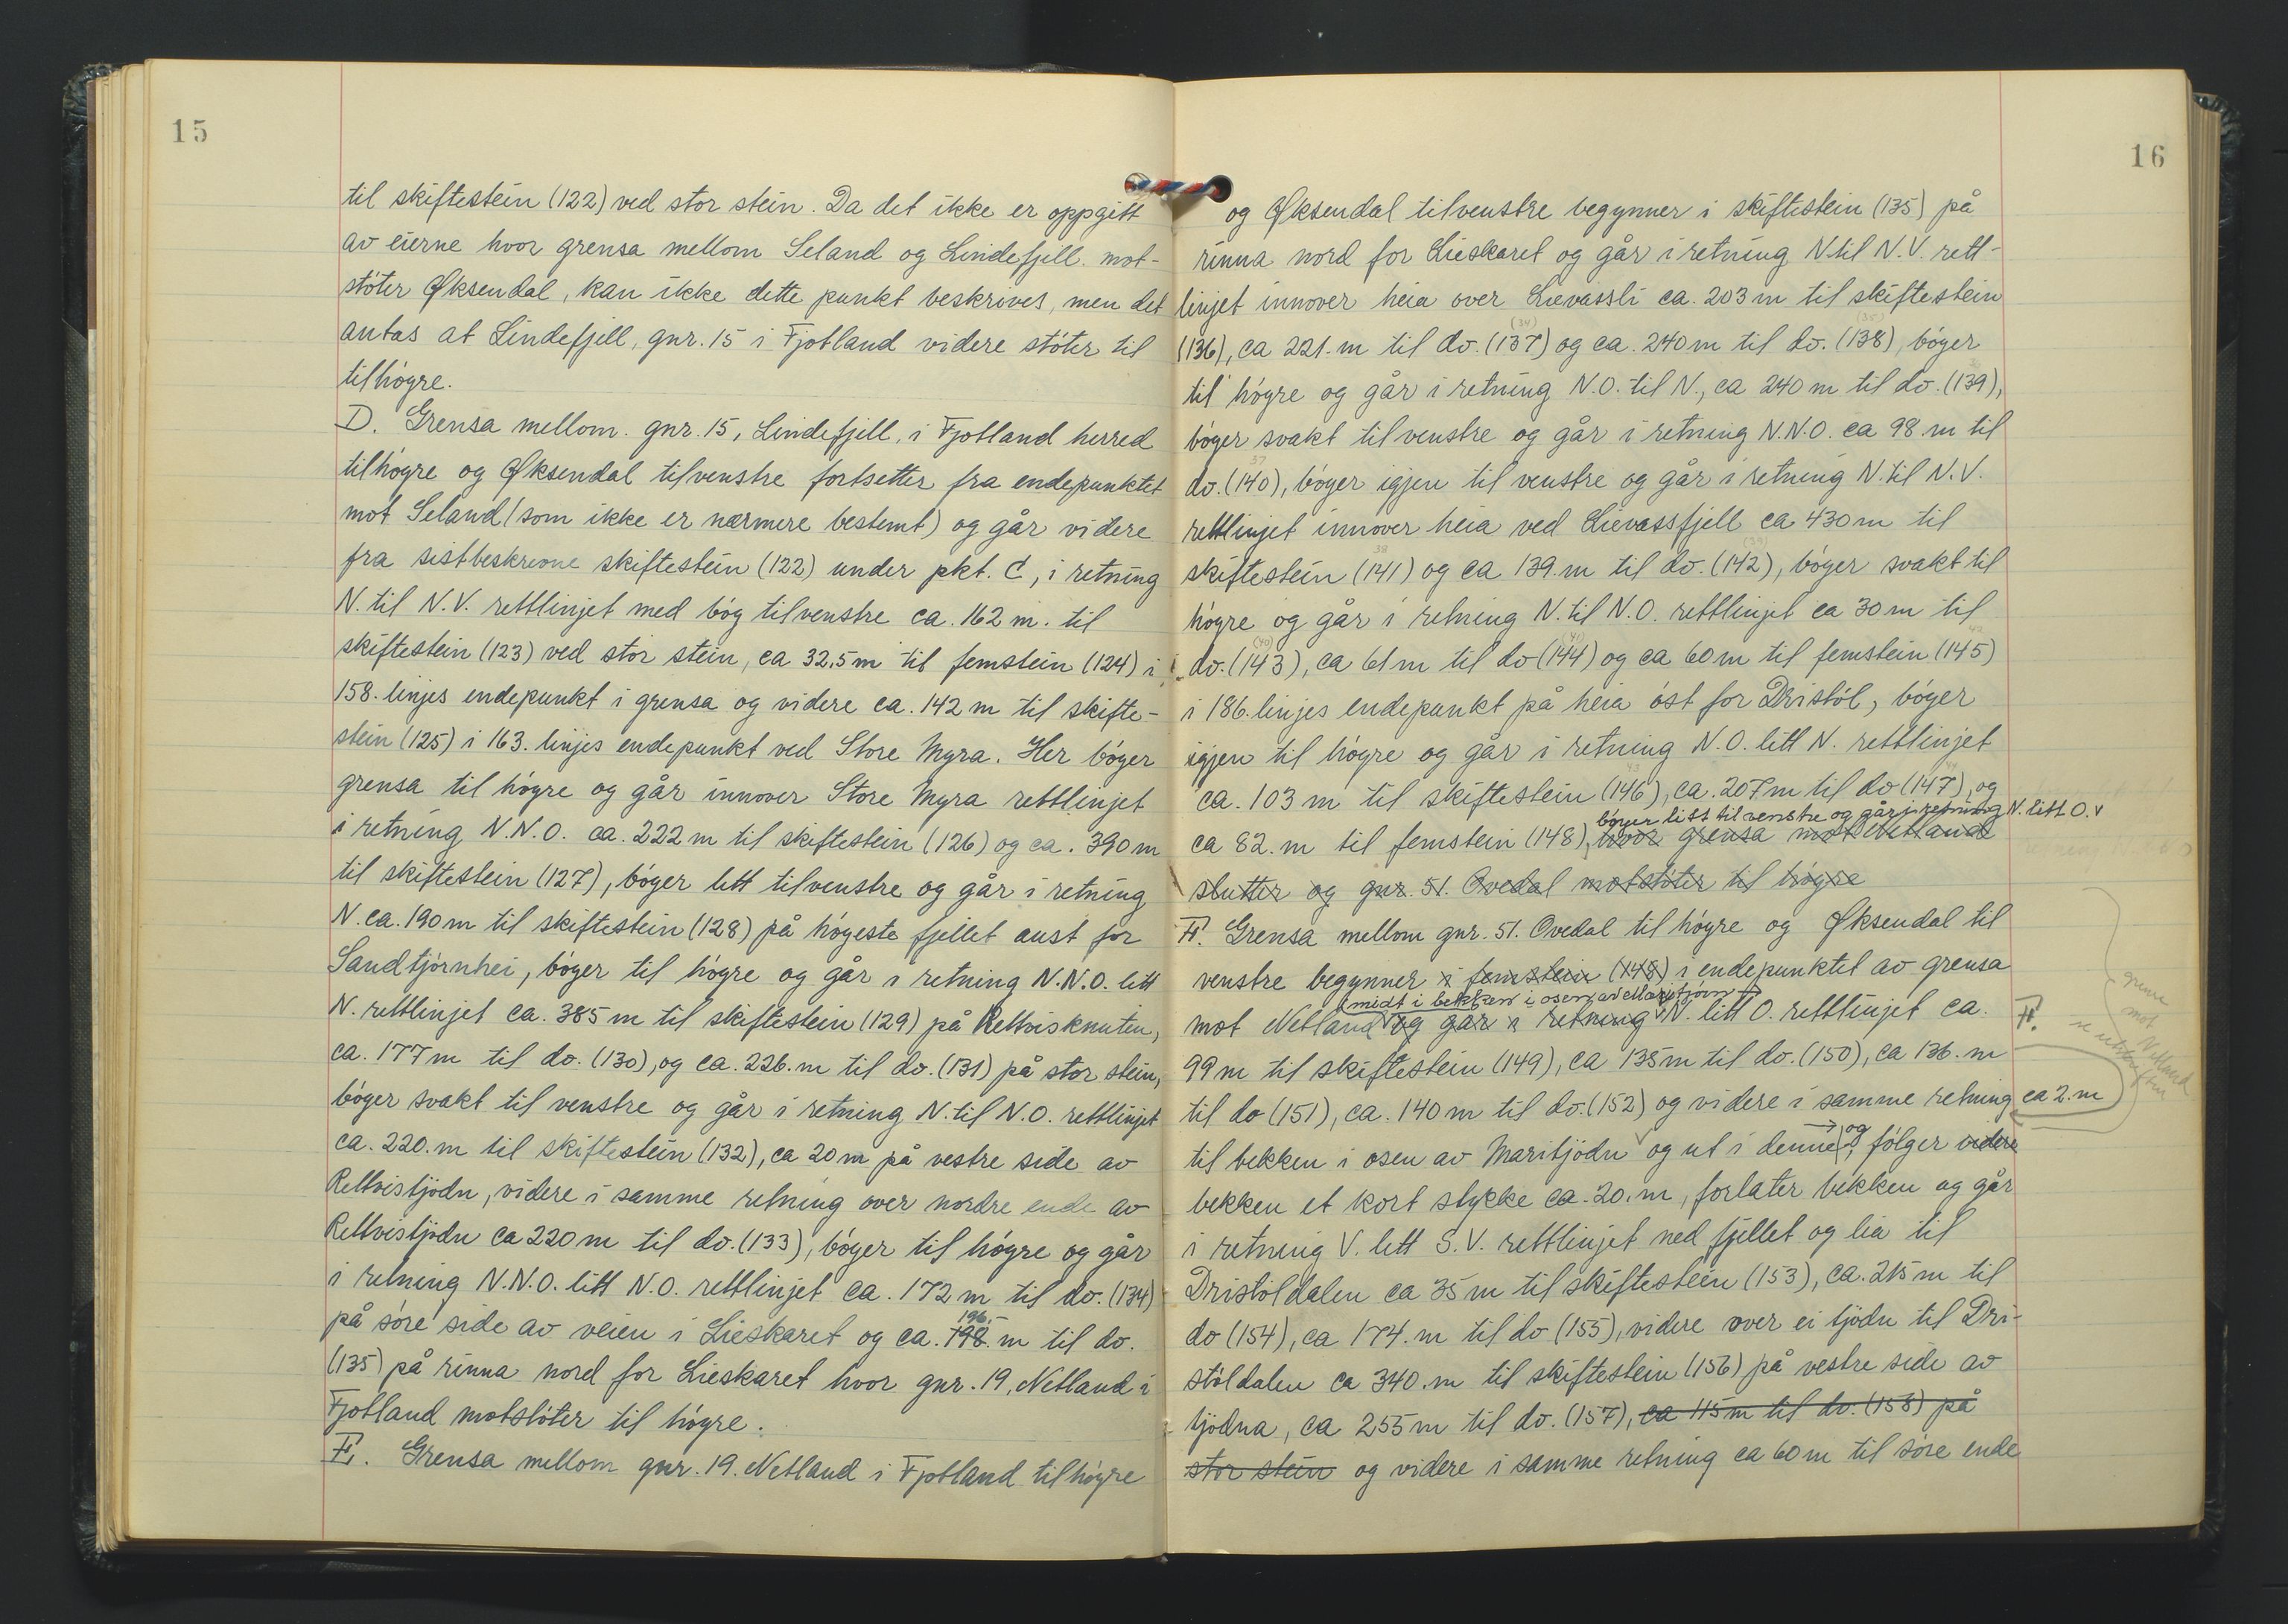 15
til skiftestein (122) ved stor stein. Da det ikke er oppgitt
av eierne hvor grensa mellom Seland og Lindefjell mot-
støter Øksendal, kan ikke dette punkt beskrives, men det
antas at Lindefjell, gnr. 15 i Fjotland videre støter til
tilhøgre.
D. Grensa mellom gnr. 15, Lindefjell, i Fjotland herred
tilhøgre og Øksendal tilvenstre fortsetter fra endepunktet
mot Seland (som ikke er nærmere bestemt) og går videre
fra sistbeskrevne skiftestein (122) under pkt. C, i retning
N. til N.V. rettlinjet med bøg tilvenstre ca. 162 m. til
skiftestein (123) ved stor stein, ca 32,5 m til femstein (124) i
158. linjes endepunkt i grensa og videre ca. 142 m til skifte-
stein (125) i 163. linjes endepunkt ved Store Myra. Her bøger
grensa til høgre og går innover Store Myra rettlinjet
i retning N.N.O. ca. 222 m til skiftestein (126) og ca. 390 m
til skiftestein (127), bøger lett tilvenstre og går i retning
N. ca. 190 m til skiftestein (128) på høgeste fjellet aust for
Sandtjørnhei, bøger til høgre og går i retning N.N.O. litt
N. rettlinjet ca. 385 m til skiftestein (129) på Rettvisknuten,
ca. 177 m til do. (130), og ca. 226. m til do. (131) på stor stein,
bøger svakt til venstre og går i retning N. til N.O. rettlinjet
ca. 220. m til skiftestein (132), ca 20 m på vestre side av
Rettvistjødn, videre i samme retning over nordre ende av
Rettvistjødn ca 220 m til do. (133), bøger til høgre og går
i retning N.N.O. litt N.O. rettlinjet ca. 172 m til do. (134)
på søre side av veien i Lieskaret og ca. 198. m til do.
196.
(135) på rinna nord for Lieskaret hvor gnr. 19, Netland i
Fjotland motstøter til høgre.
E. Grensa mellom gnr. 19. Netland i Fjotland tilhøgre
16
og Øksendal tilvenstre begynner i skiftestein (135) på
rinna nord for Lieskaret og går i retning N. til N.V. rett-
linjet innover heia over Lievassli ca. 203 m til skiftestein
(34) (35)
(136), ca 221. m til do. (137) og ca. 240 m til do. (138), bøger
til høgre og går i retning N.O. til N., ca 240 m til do. (139),
bøger svakt til venstre og går i retning N.N.O. ca 98 m til
37
do. (140), bøger igjen til venstre og går i retning N. til N.V.
rettlinjet innover heia ved Lievassfjell ca 430 m til
38 (39)
skiftestein (141) og ca 139. m til do. (142), bøger svakt til
høgre og går i retning N. til N.O. rettlinjet ca 30 m til
(40) (41) 42
do. (143), ca 61 m til do (144) og ca 60 m til femstein (145)
i 186. linjes endepunkt på heia øst for Dristøl, bøger
igjen til høgre og går i retning N.O. litt N. rettlinjet
43 44
ca. 103 m til skiftestein (146), ca. 207 m til do (147), og
bøyer litt til venstre og går i retning N. litt O.
ca 82. m til femstein (148), hvor grensa mot Netland
slutter og gnr. 51. Ovedal motstøter til høgre
F. Grensa mellom gnr. 51. Ovedal til høgre og Øksendal til
venstre begynner i femstein (148) i endepunktet av grensa
midt i bekken i osen av Maritjørn
mot Netland og går i retning N. litt O. rettlinjet ca.
F.
99 m til skiftestein (149), ca 135 m til do. (150), ca 136. m
til do (151), ca. 140 m til do. (152) og videre i samme retning ca 2. m
til bekken i osen av Maritjødn og ut i denne, og følger videre
bekken et kort stykke ca. 20. m, forlater bekken og går
i retning V. litt S.V. rettlinjet ned fjellet og lia til
Dristøldalen ca 35 m til skiftestein (153), ca. 215 m til
do (154), ca 174. m til do (155), videre over ei tjødn til Dri-
støldalen ca 340. m til skiftestein (156) på vestre side av
tjødna, ca 255 m til do. (157), ca 115 m til do. (158) på
stor stein og videre i samme retning ca 60 m til søre ende
grense
mot
Netland
se utskriften